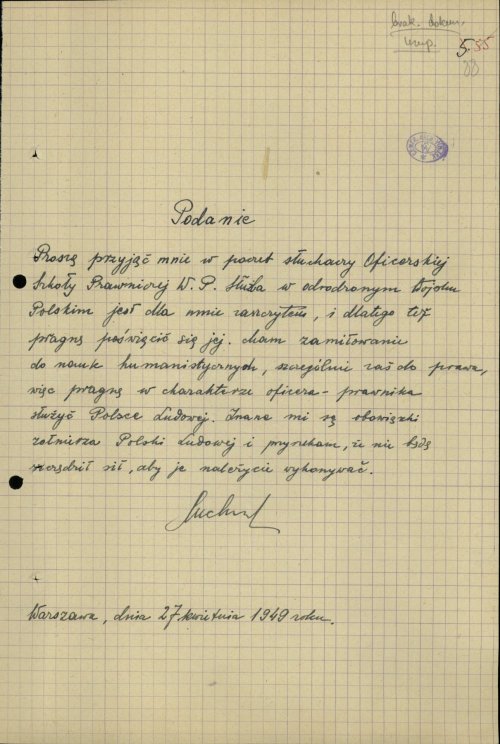 5.
55
88
Podanie
Proszę przyjąć mnie w poczet słuchaczy Oficerskiej
Szkoły Prawniczej W. P. Służba w odrodzonym Wojsku
Polskim jest dla mnie zaszczytem, i dlatego też
pragnę poświęcić się jej. Mam zamiłowanie
do nauk humanistycznych, szczególnie zaś do prawa,
więc pragnę w charakterze oficera-prawnika
służyć Polsce Ludowej. Znane mi są obowiązki
żołnierza Polski Ludowej i przyrzekam, że nie będę
szczędził sił, aby je należycie wykonywać.
Warszawa, dnia 27 kwietnia 1949 roku.